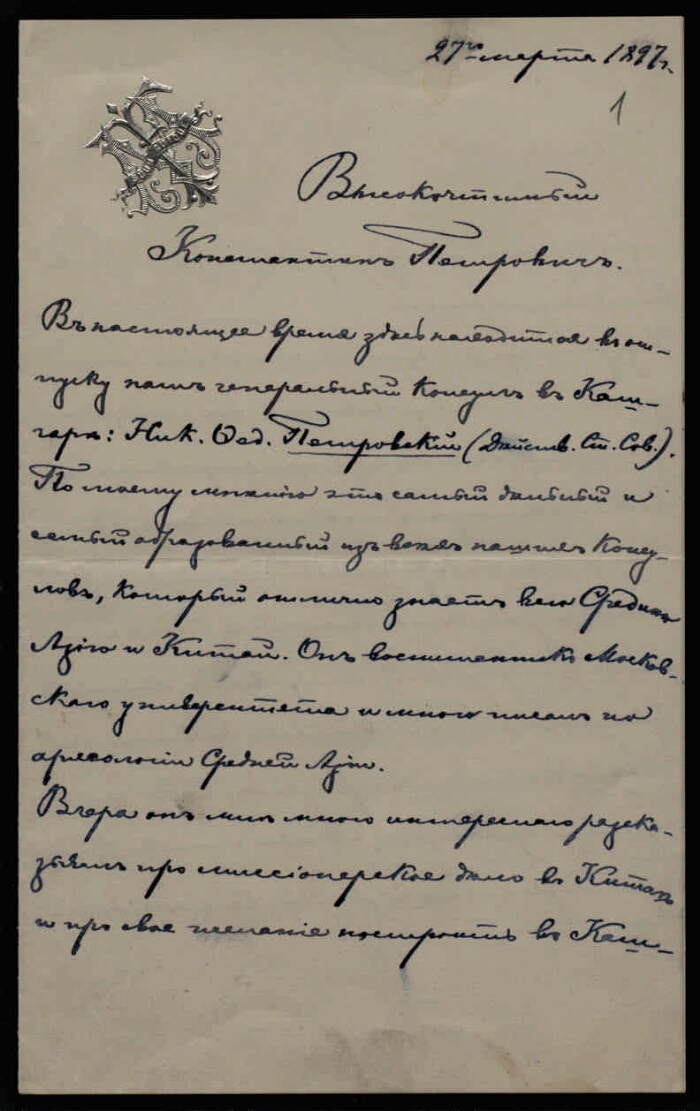 27го марта 1897 г.
1
Высокочтимый
Константинъ Петровичъ.
Въ настоящее время здѣсь находится въ от-
пуску нашъ генеральный Консулъ въ Каш-
гарѣ: Ник. Ѳед. Петровскій (Дѣйств. Ст. Сов.).
По моему мнѣнію это самый дѣльный и
самый образованный изъ всѣхъ нашихъ Консу-
ловъ, который отлично знаетъ всю Среднюю
Азію и Китай. Онъ воспитанникъ Москов-
скаго университета и много писалъ по
археологіи Средней Азіи.
Вчера онъ мнѣ много интереснаго разска-
зывалъ про миссіонерское дѣло въ Китаѣ
и про свое желаніе построить въ Каш-